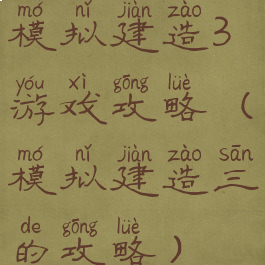 mó nǐ jiàn zào
模拟建造3
yóu xì gōng lüè
游戏攻略（
mó nǐ jiàn zào sān
模拟建造三
de gōng lüè
的攻略）